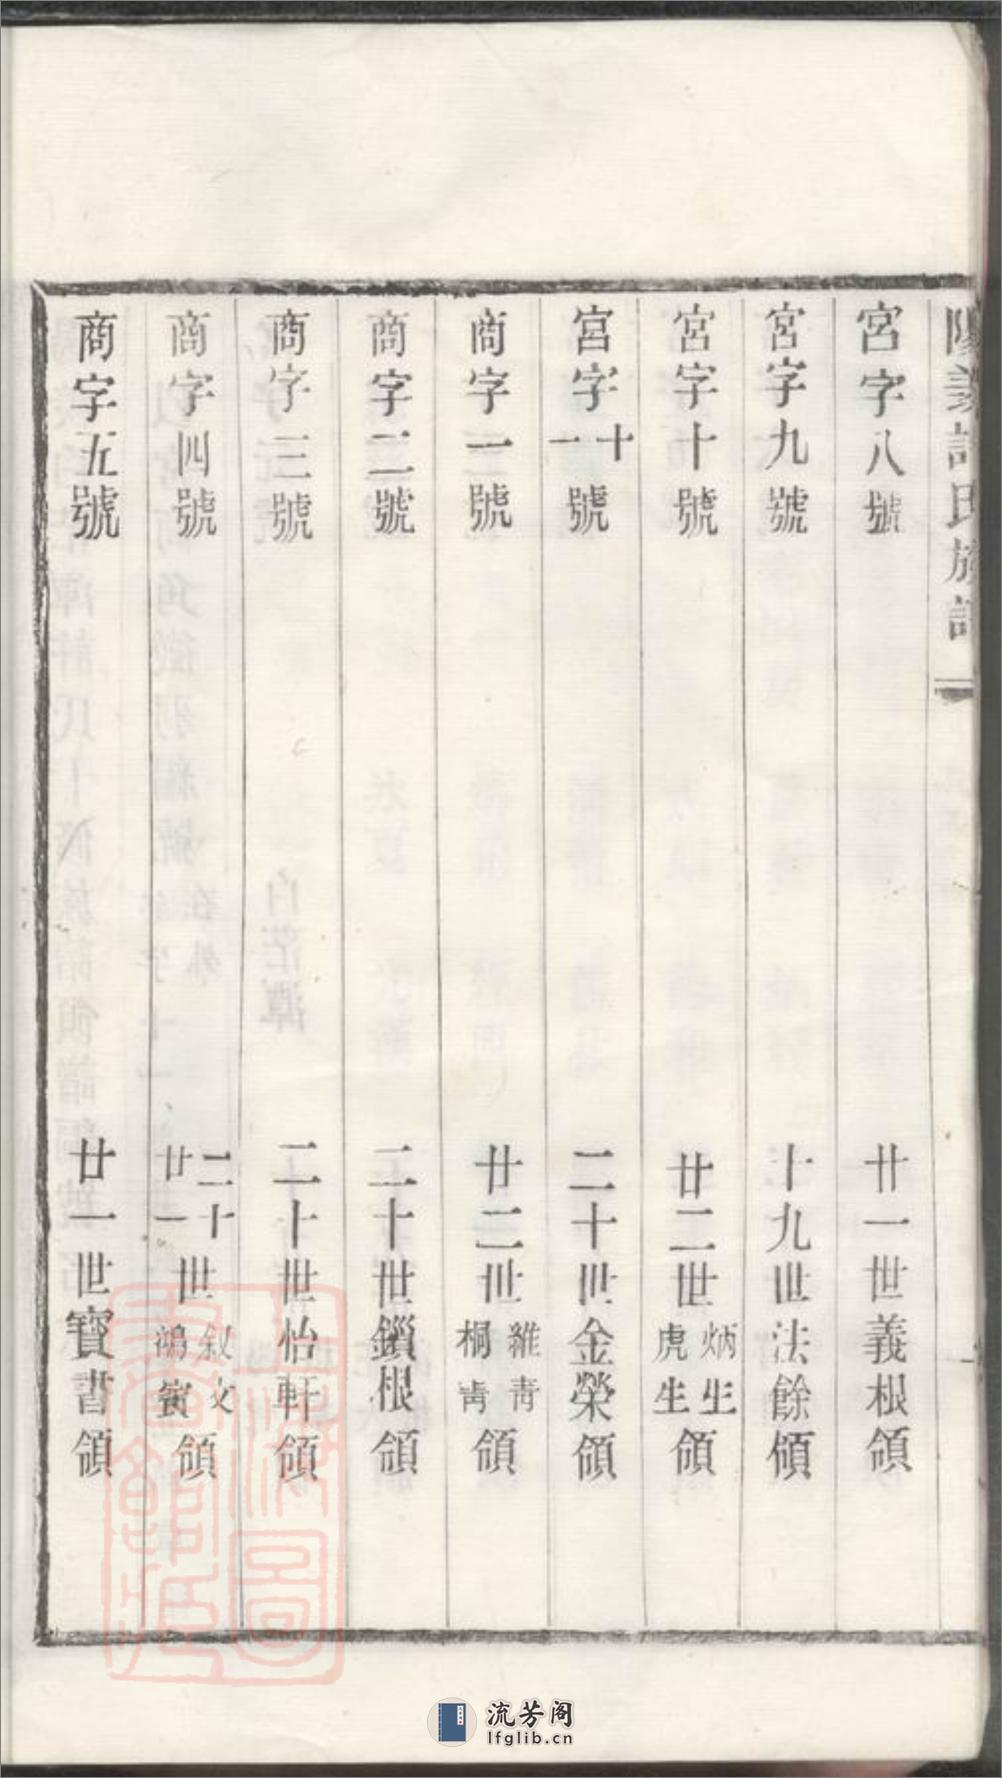 陽羨許氏族譜
宮字八號 廿一世義根領
宮字九號 十九世法餘領
宮字十號 廿二世炳生虎生領
宮字十一號 二十世金榮領
商字一號 廿二世維青桐青領
商字二號 二十世鎖根領
商字三號 二十世怡軒領
商字四號 二十廿一世叙文鴻賓領
商字五號 廿一世寶書領
流芳阁
lfglib.cn